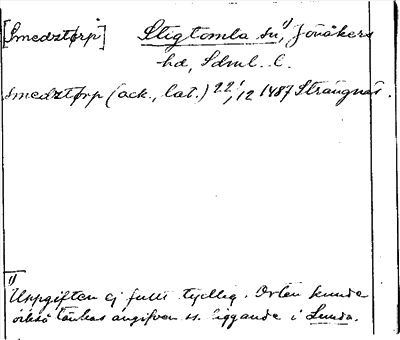 [Smedztørp] Stigtomla sn,¹⁾ Jönåkers
hd, Sdml. C.
Smedztørp (ack., lat.) 22/12 1487 Strängnäs.
1)
Uppgiften ej fullt tydlig. Orten kunde
också tänkas angifven ss. liggande i Lunda.